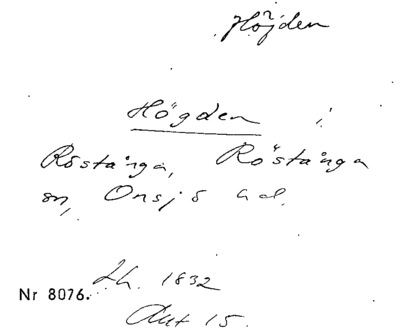 Höjden
Högden i
Röstånga, Röstånga
sn, Onsjö hd.
Lh. 1832
Nr 8076.
Akt 15.